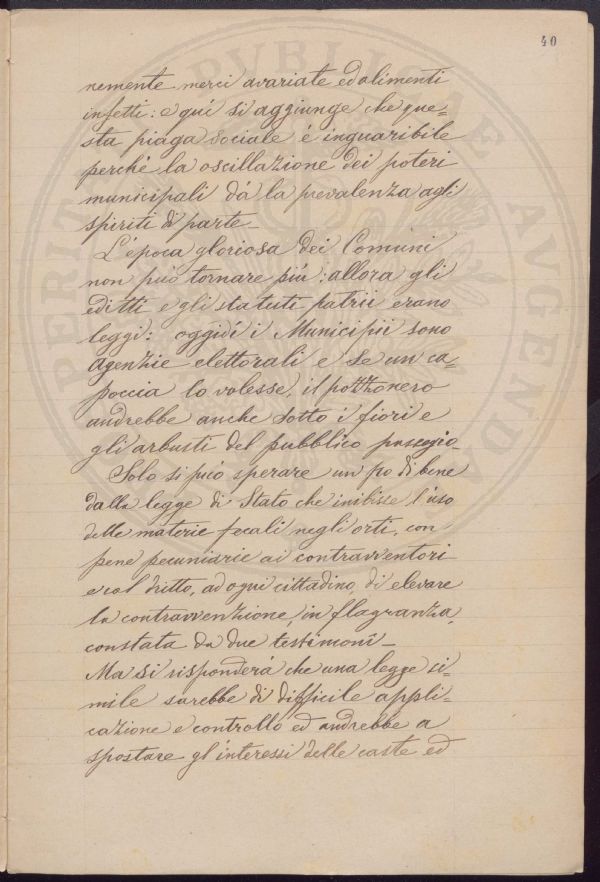 40
nemente merci avariate ed alimenti
infetti: e quì si aggiunge che que-
sta piaga sociale è inguaribile
perchè la oscillazione dei poteri
municipali dà la prevalenza agli
spiriti di parte_
L'epoca gloriosa dei Comuni
non può tornare più; allora gli
editti e gli statuti patrii erano
leggi: oggidì i Municipii sono
agenzie elettorali e se un ca-
poccia lo volesse, il pozzonero
andrebbe anche sotto i fiori e
gli arbusti del pubblico passegio_
Solo si può sperare un po di bene
dalla legge di Stato che inibisse l'uso
delle materie fecali negli orti, con
pene pecuniarie ai contravventori
e col dritto, ad ogni cittadino, di elevare
la contravvenzione, in flagranza,
constata da due testimonî_
Ma si risponderà che una legge si-
mile sarebbe di difficile appli-
cazione e controllo ed andrebbe a
spostare gl'interessi delle caste ed
PERITIA PUBLICAE AUGENDA